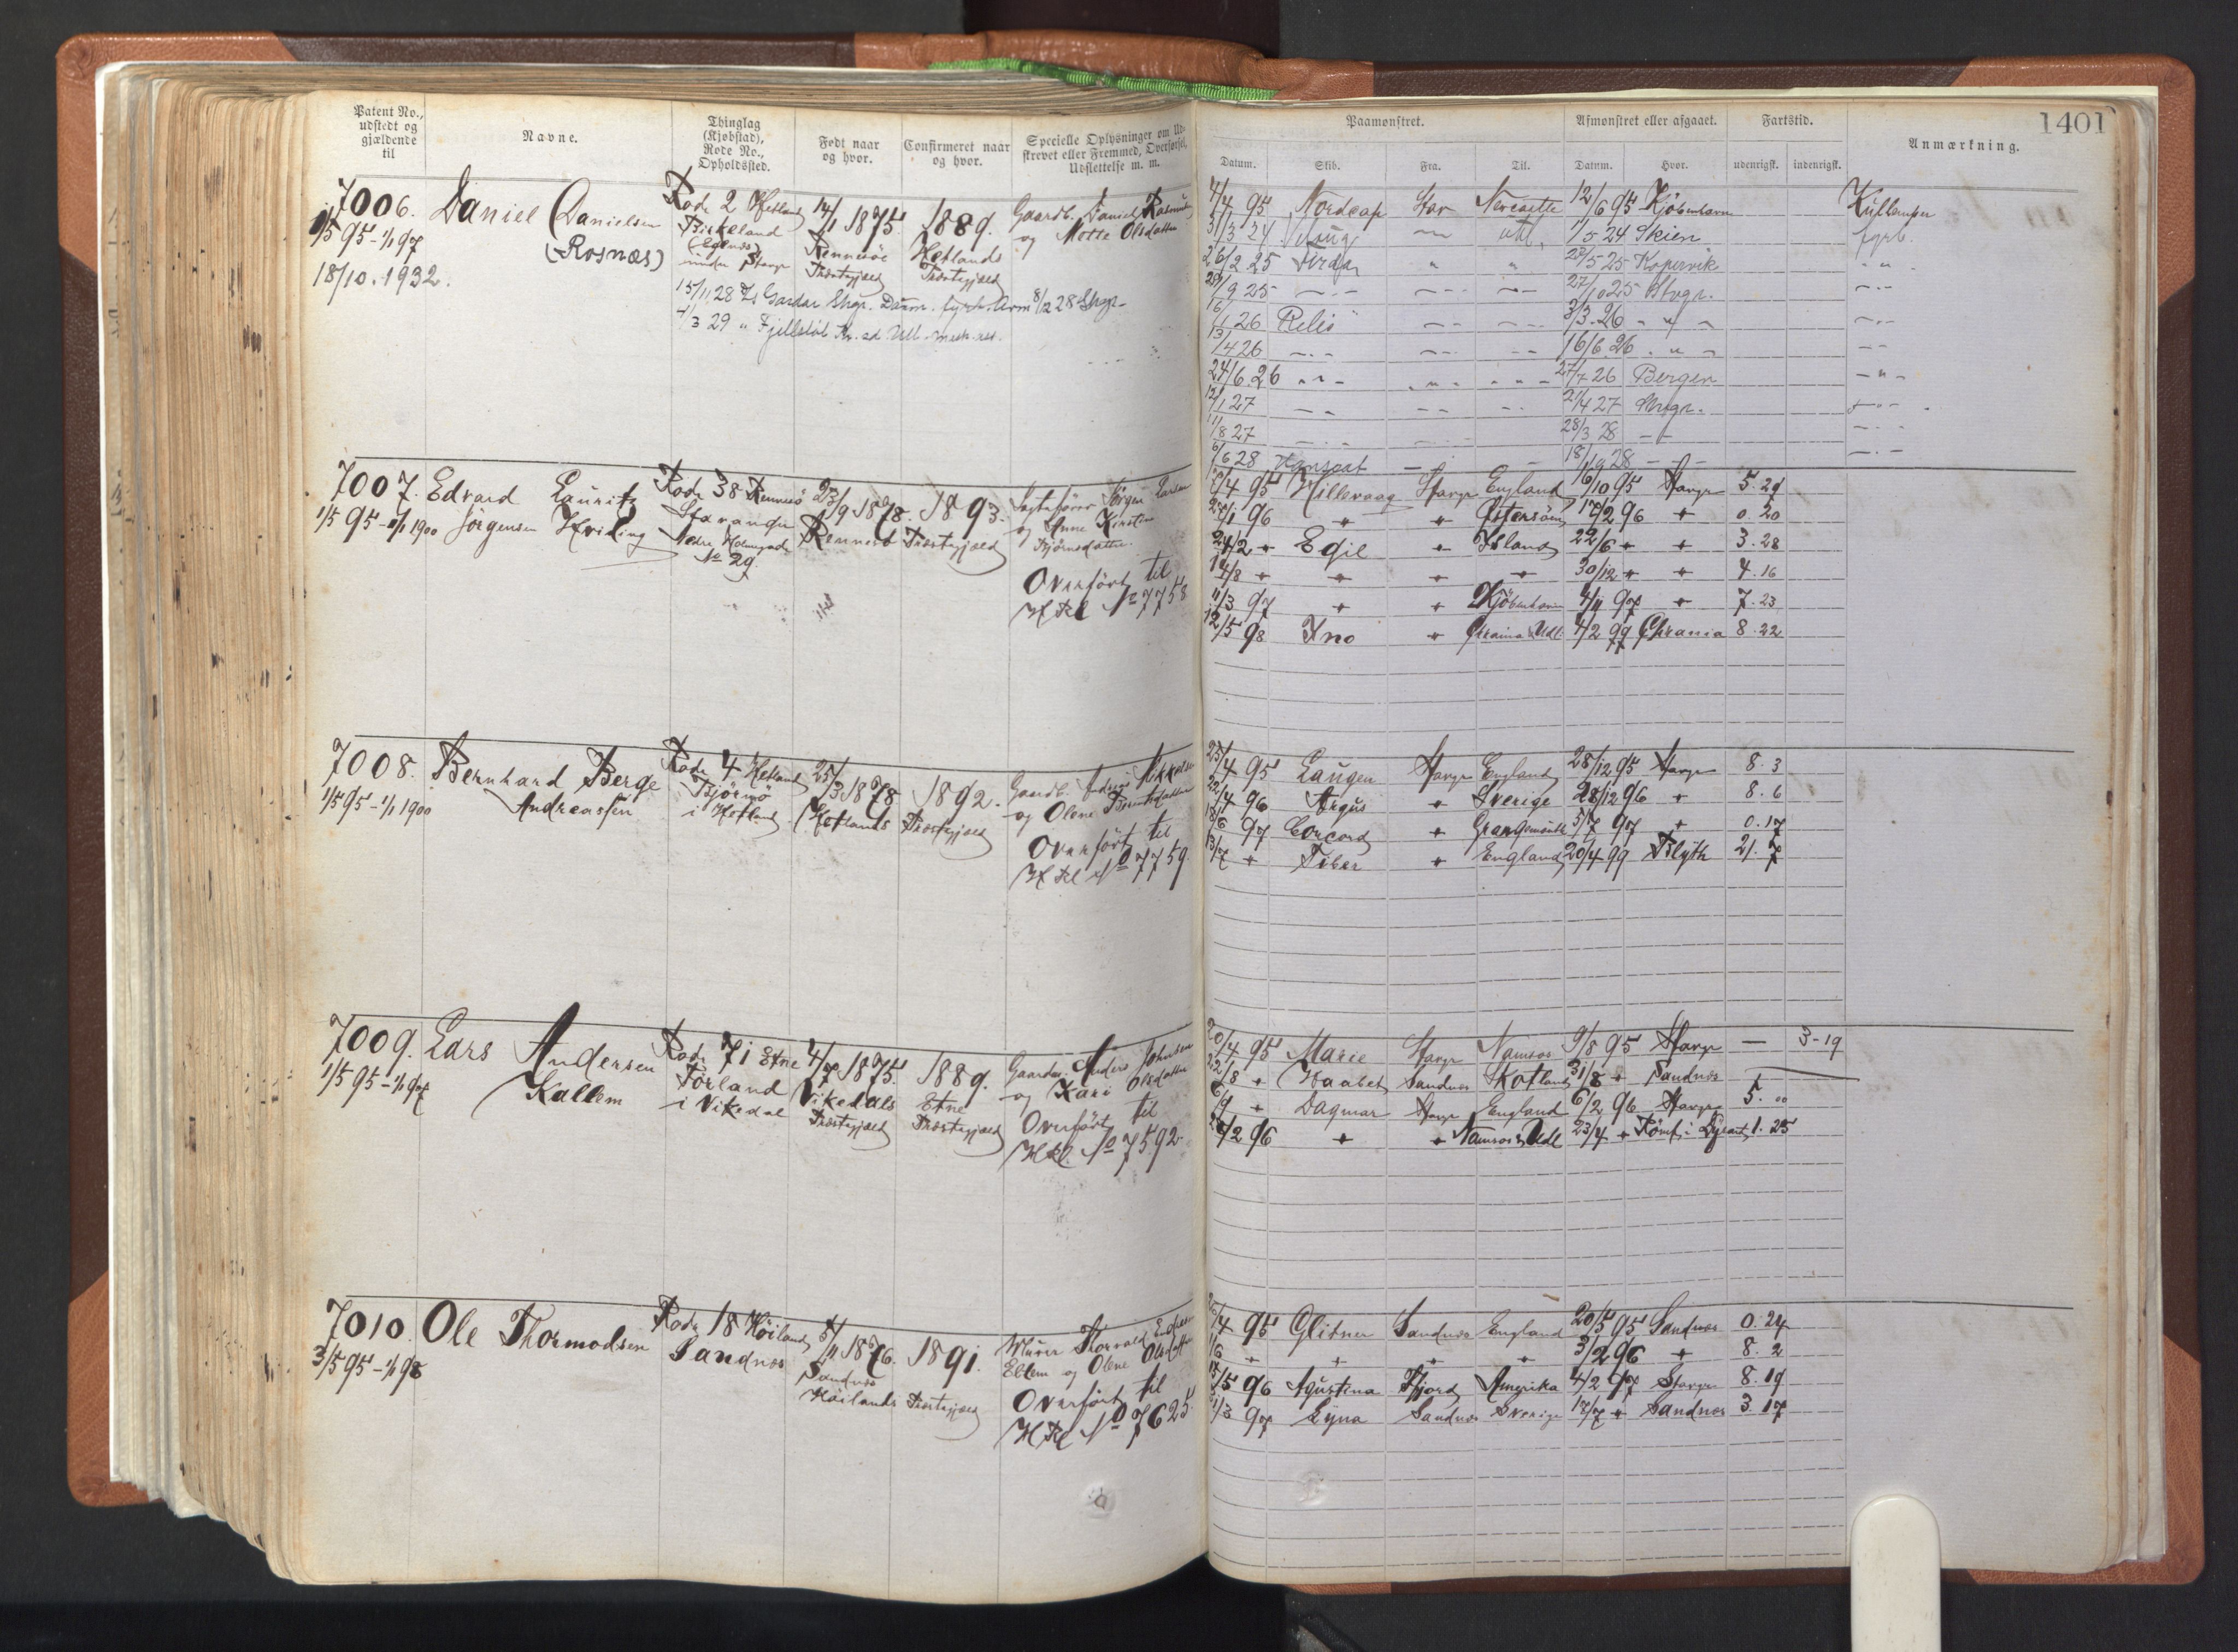 Patent No., udstedt og gjældende til
Navne.
Thinglag (Kjøbstad), Rode No., Opholdssted.
Født naar og hvor.
Confirmeret naar og hvor.
Specielle Oplysninger om Udskrevet eller Fremmed, Overførsel, Udslettelse m. m.
Paamønstret.
Afmønstret eller afgaaet.
Fartstid.
Anmærkning.
1401
Datum. Skib. Fra. Til. Datum. Hvor. udenrigsk. indenrigsk.
7006. Daniel Danielsen Rode 2 Hetland 14/1 1875. 1889. Gaardb. Daniel
1/5 95 - 1/1 97 (Rosnæs) Birkeland Rennesöe Hetlands og Mette Olsdatter
18/10. 1932. (Egenæs) under Stavgr Præstegjæld Præstegjæld
15/11 28 Gardar
4/3 29 " Fjeldstöl
4/4 95 Nordcap Stav 12/6 95 Kjöbenhavn Kullemper
31/3 24 utl. 1/5 24 Skien fyrb.
26/2 25 " " 28/5 25 Kopervik - " -
29/9 25 27/10 25 Stvgr. - " -
16/1 26 Relis 3/3 26 - " -
13/4 26 16/6 26 - " -
24/6 26 - " - 27/7 26 Bergen - " -
12/1 27 21/4 27 Stvgr.
11/8 27 28/3 28 - -
6/6 28 18/9 28 - -
7007. Edvard Lauritz Rode 38 Rennesö 23/9 1878. 1893. Jagtefører Jörgen Larsen
1/5 95 - 1/1 1900 Jörgensen Hviding Stavanger Rennesö Præstegjæld og Anne Kirstine
Nedre Holmegade Bjørnsdatter.
No 29. Overført til
H Rl No 7758
7/4 95 Hillevaag Stavgr England 16/10 95 Stavgr 5. 29
27/1 96 " " Östersöen 17/2 96 " 0. 20
24/2 " Egil " Island 22/6 " " 3. 28
14/8 " " " " 30/12 " " 4. 16
11/3 97 " " Kjöbenhavn 4/11 97 " 7. 23
12/5 98 Ino " Chrania Udl. 4/2 99 Chrania 8. 22
7008. Bernhard Berge Rode 4 Hetland 25/3 1878 1892. Gaardb.
1/5 95 - 1/1 1900 Andreassen Bjørnö Hetlands Præstegjæld og Olene
i Hetland Overført til
H Rl No 7759
25/4 95 Laugen Stavgr England 28/12 95 Stavgr 8. 3
22/4 96 Argus " Sverige 28/12 96 " 8. 6
18/6 97 Concord " Grangemouth 5/7 97 " 0. 17
13/7 " Tiber " England 20/4 99 Blyth 21. 7
7009. Lars Andersen Rode 71 Etne 4/7 1875. 1889. Gaardm. Anders Johnsen
1/5 95 - 1/1 97 Kallem Förland Vikedals Etne og Kari Olsdatter
i Vikedal Præstegjæld Præstegjæld Overført til
H Rl. No 7592
20/4 95 Marie Stavgr Namsos 9/8 95 Stavgr — 3-19
22/8 " Haabet Sandnes Skotland 31/8 " Sandnes —
6/9 " Dagmar Stavgr England 6/2 96 Stavgr 5. "
96 " " Namsos & Udl 23/4 " 1. 25
7010. Ole Thormodsen Rode 18 Höiland 5/11 1876. 1891. Murer Thorvald
3/5 95 - 1/1 98 Sandnes Sandnes Eltem og Olene Olsdatter
Höilands Præstegjæld Overført til
H Rl No 7625
95 Glitner Sandnes England 20/5 95 Sandnes 0. 24
1/6 " " " " 3/2 96 " 8. 2
96 Agustina Fjord Amerika 4/2 97 Stavgr 8. 19
1/3 97 Lyna Sandnes Sverige 17/7 " Sandnes 3. 17